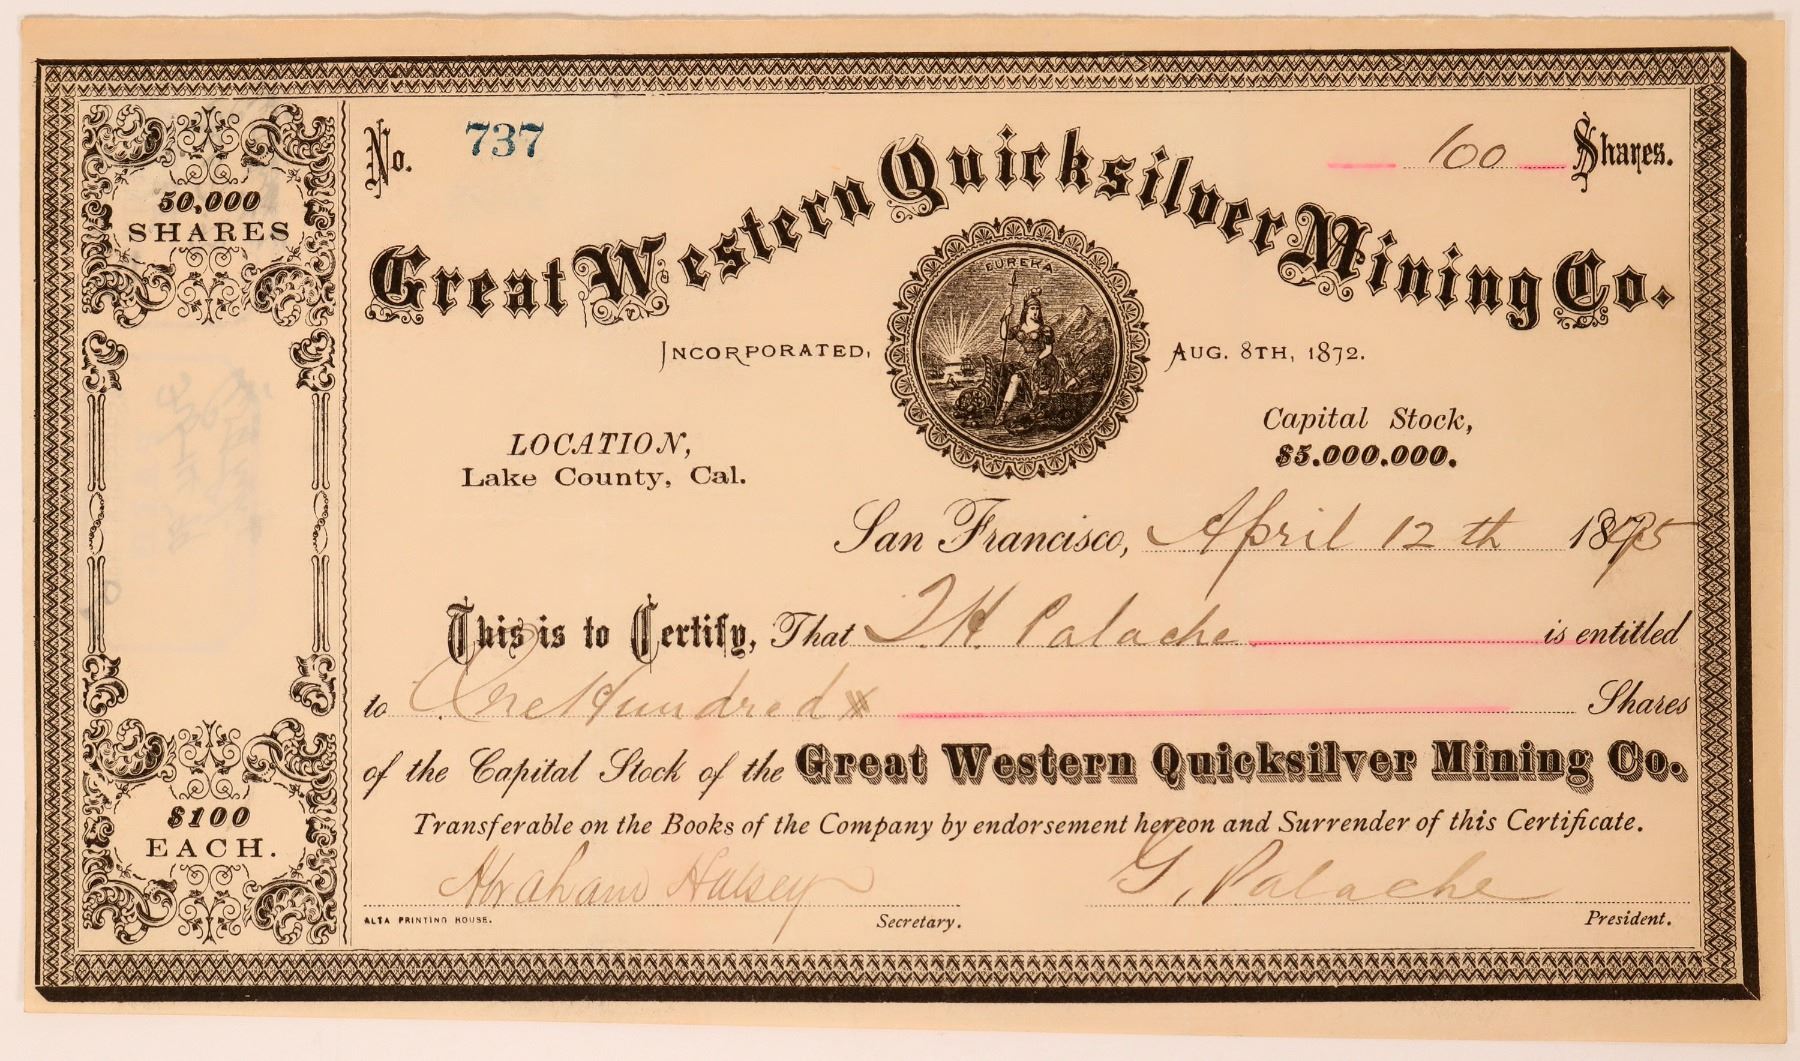 No. 737
100 Shares.
Great Western Quicksilver Mining Co.
EUREKA
INCORPORATED, AUG. 8TH, 1872.
50,000
SHARES
LOCATION,
Lake County, Cal.
Capital Stock,
$5.000.000.
San Francisco, April 12th 1875
This is to Certify, That J.H. Palache is entitled
to One Hundred Shares
of the Capital Stock of the Great Western Quicksilver Mining Co.
Transferable on the Books of the Company by endorsement hereon and Surrender of this Certificate.
$100
EACH.
Abraham Halsey
G. Palache
ALTA PRINTING HOUSE.
Secretary.
President.